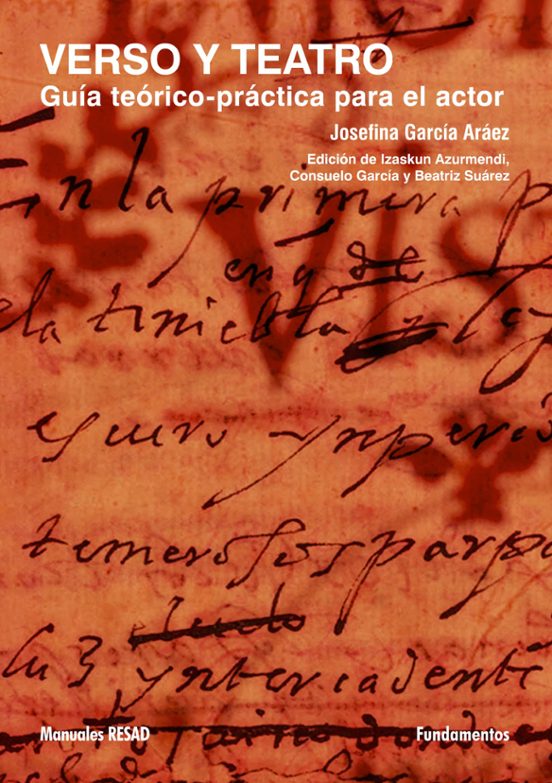 VERSO Y TEATRO
Guía teórico-práctica para el actor
Josefina García Aráez
Edición de Izaskun Azurmendi,
Consuelo García y Beatriz Suárez
En la primera p
VIS
en q de
la tiniebla
escuro ymperio
temerosos parpa
luz yntercadente
Manuales RESAD
Fundamentos